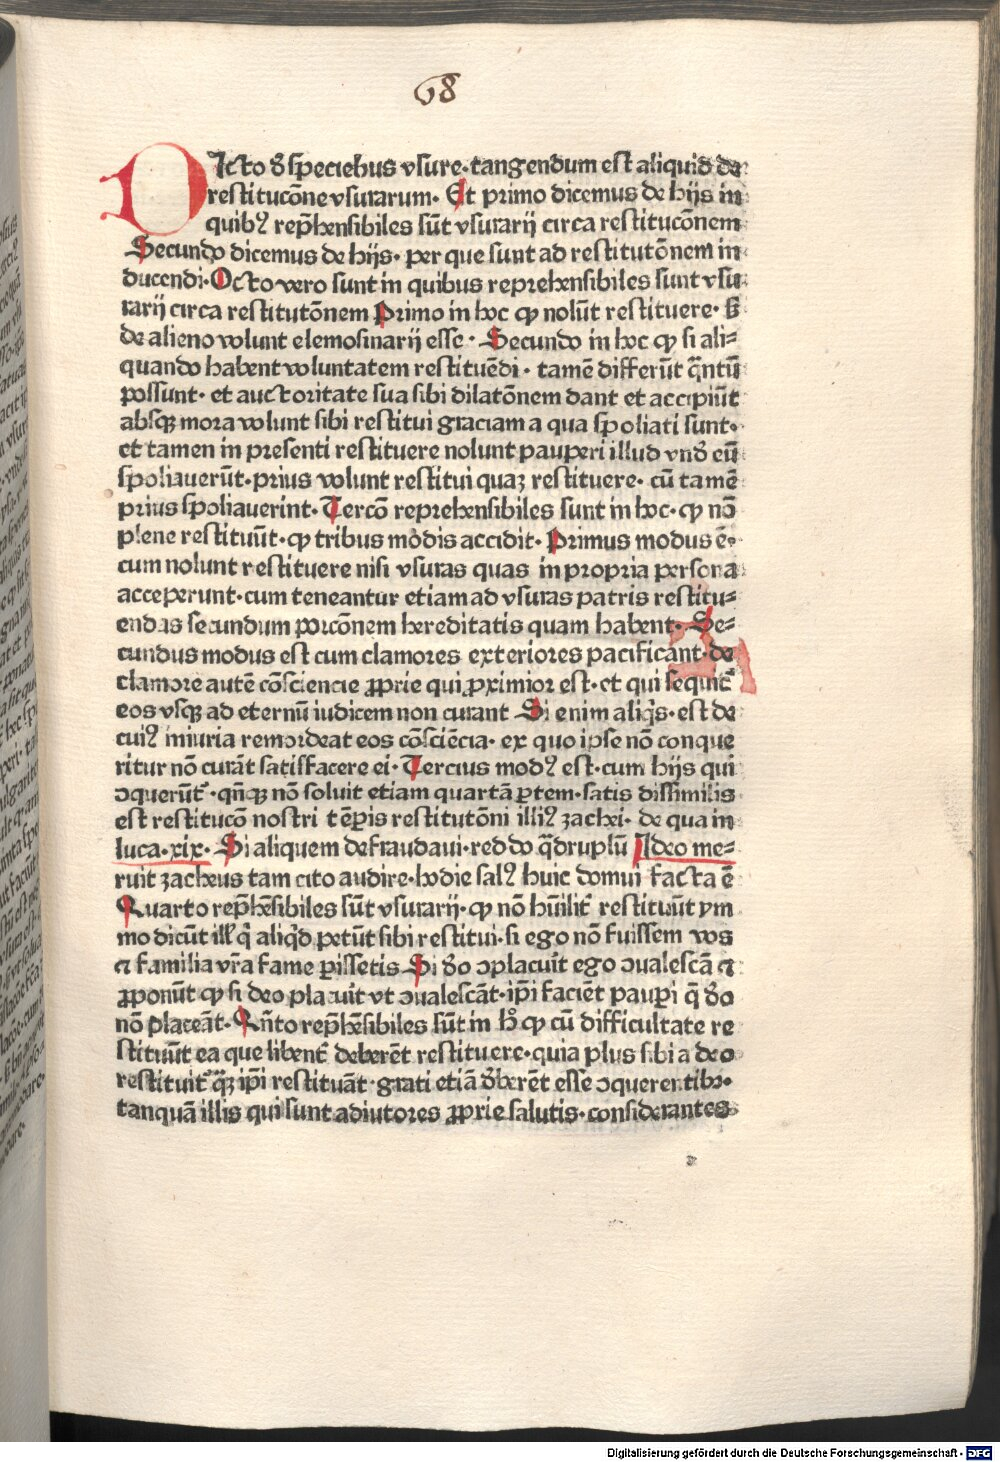 68
DIcto đ speciebus vsure·tangendum est aliquid de
restitucōne vsurarum· Et primo dicemus de hijs in
quibꝰ rep̄hensibiles sūt vsurarij circa restitucōnem
Secundo dicemus de hijs· per que sunt ad restitutōnem in
ducendi·Octo vero sunt in quibus reprehensibiles sunt vsu
rarij circa restitutōnem Primo in hoc ꝙ nolūt restituere·
de alieno volunt elemosinarij esse· Secundo in hoc ꝙ si ali⸗
quando habent voluntatem restituēdi· tamē differūt q̄ntū
possunt· et auctoritate sua sibi dilatōnem dant et accipiūt
absqꝫ mora volunt sibi restitui graciam a qua spoliati sunt·
et tamen in presenti restituere nolunt pauperi illud vnđ eū
spoliauerūt·prius volunt restitui quaꝫ restituere· cū tamē
prius spoliauerint· Tercō reprehensibiles sunt in hoc· ꝙ nō
plene restituūt·ꝙ tribus modis accidit· Primus modus ē·
cum nolunt restituere nisi vsuras quas in propria persona
acceperunt·cum teneantur etiam ad vsuras patris restitu⸗
endas secundum porcōnem hereditatis quam habent· Se⸗
cundus modus est cum clamores exteriores pacificant·de
clamore autē cōsciencie ꝓprie qui ꝓximior est·et qui sequit᷑
eos vsqꝫ ad eternū iudicem non curant Si enim aliq̇s·est de
cuiꝰ iniuria remordeat eos cōsciēcia· ex quo ipse nō conque
ritur nō curāt satisfacere ei·Tercius modꝰ est·cum hijs qui
ɔquerūt᷑·qn̄qꝫ nō soluit etiam quartā ꝑtem·satis dissimilis
est restitucō nostri tēꝑis restitutōni illiꝰ zachei· de qua in
luca·xix· Si aliquem defraudaui·reddo q̄druplū Ideo me⸗
ruit zacheus tam cito audire·hodie salꝰ huic domui facta ē
Quarto rep̄hēsibiles sūt vsurarij·ꝙ nō hūilit᷑ restituūt ym
mo dicūt q̇ aliq̇d petūt sibi restitui·si ego nō fuissem vos
⁊ familia vr̄a fame ꝑissetis Si đo ɔplacuit ego ɔualescā ⁊
ꝓponūt ꝙ si deo placuit vt ɔualescāt·ip̄i faciēt pauꝑi q̄ đo
nō placeāt·Qn̄to rep̄hēsibiles sūt in hͦ ꝙ cū difficultate re
stituūt ea que libent᷑ deberēt restituere·quia plus sibi a deo
restituit᷑ qͣꝫ ip̄i restituāt·grati etiā đberēt esse ɔquerentibꝰ·
tanquā illis qui sunt adiutores ꝓprie salutis·considerantes
Digitalisierung gefördert durch die Deutsche Forschungsgemeinschaft - DFG